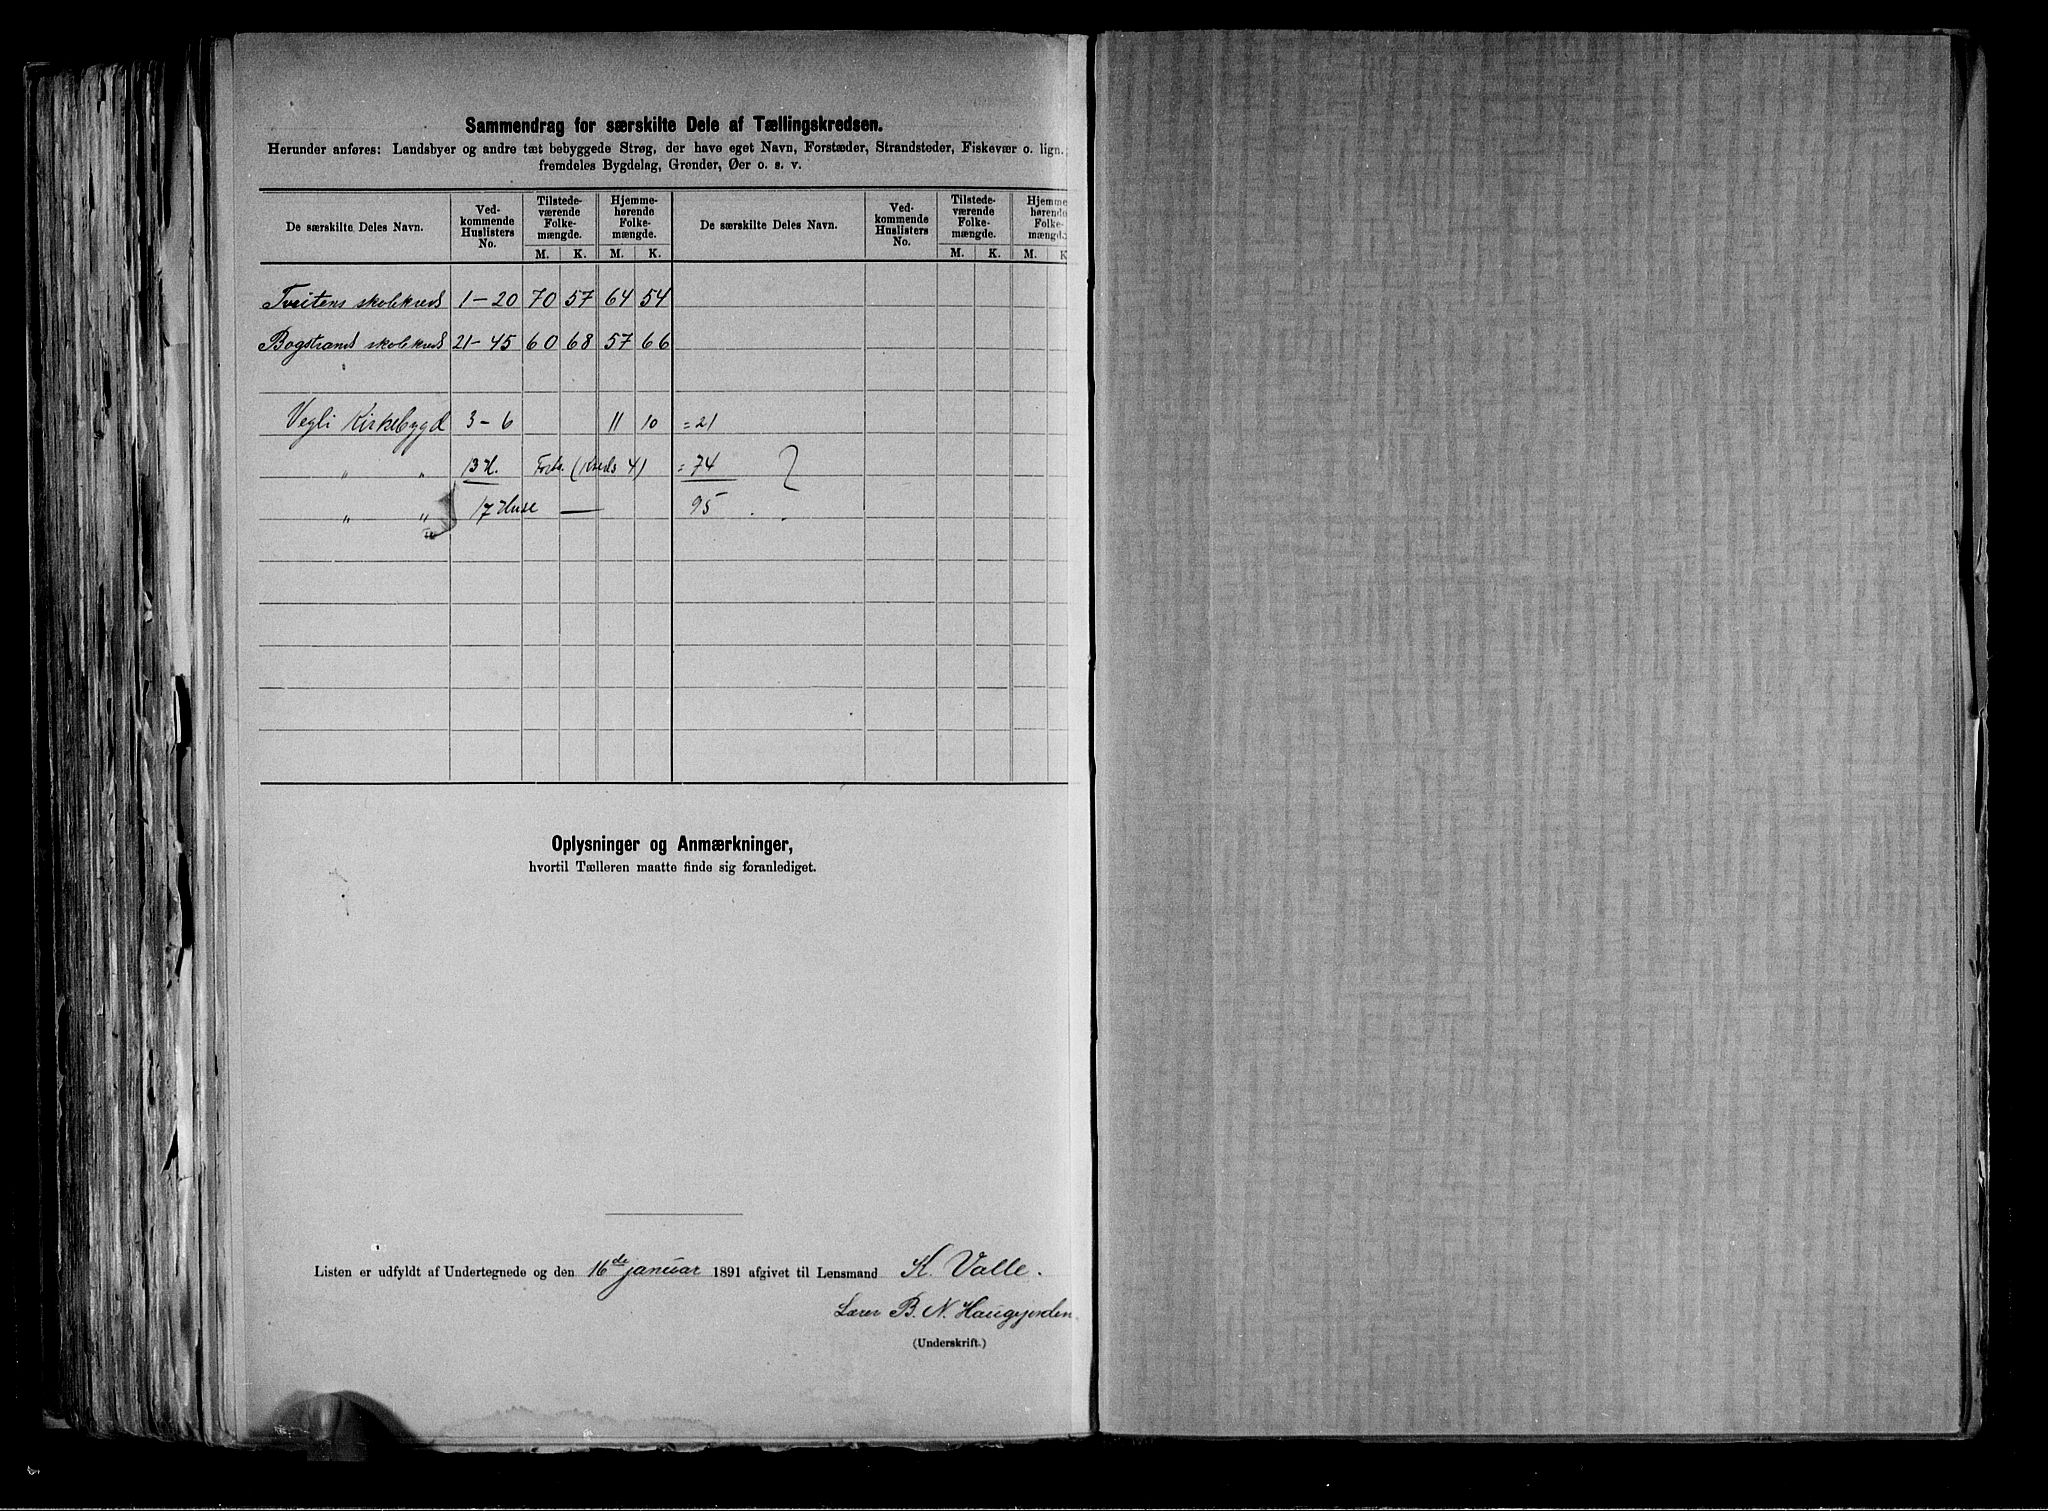 Sammendrag for særskilte Dele af Tællingskredsen.
Herunder anføres: Landsbyer og andre tæt bebyggede Strøg, der have eget Navn, Forstæder, Strandsteder, Fiskevær o. lign.;
fremdeles Bygdelag, Grender, Øer o. s. v.
De særskilte Deles Navn.
Ved-
kommende
Huslisters
No.
Tilstede-
værende
Folke-
mængde.
Hjemme-
hørende
Folke-
mængde.
De særskilte Deles Navn.
Ved-
kommende
Huslisters
No.
Tilstede-
værende
Folke-
mængde.
Hjemme
hørende
Folke-
mængd
M. K. M. K. M. K. M. K
Tveitens skolekreds 1-20 70 57 64 54
Bogstrands skolekreds 21-45 60 68 57 66
Vegli Kirkebygd 3-6 11 10 =21
" " 13 H. (Kreds 4) = 74
" " 17 Huse — 95
Oplysninger og Anmærkninger,
hvortil Tælleren maatte finde sig foranlediget.
Listen er udfyldt af Undertegnede og den 16de januar 1891 afgivet til Lensmand K. Valle.
Lærer B. N. Haugjorden
(Underskrift.)